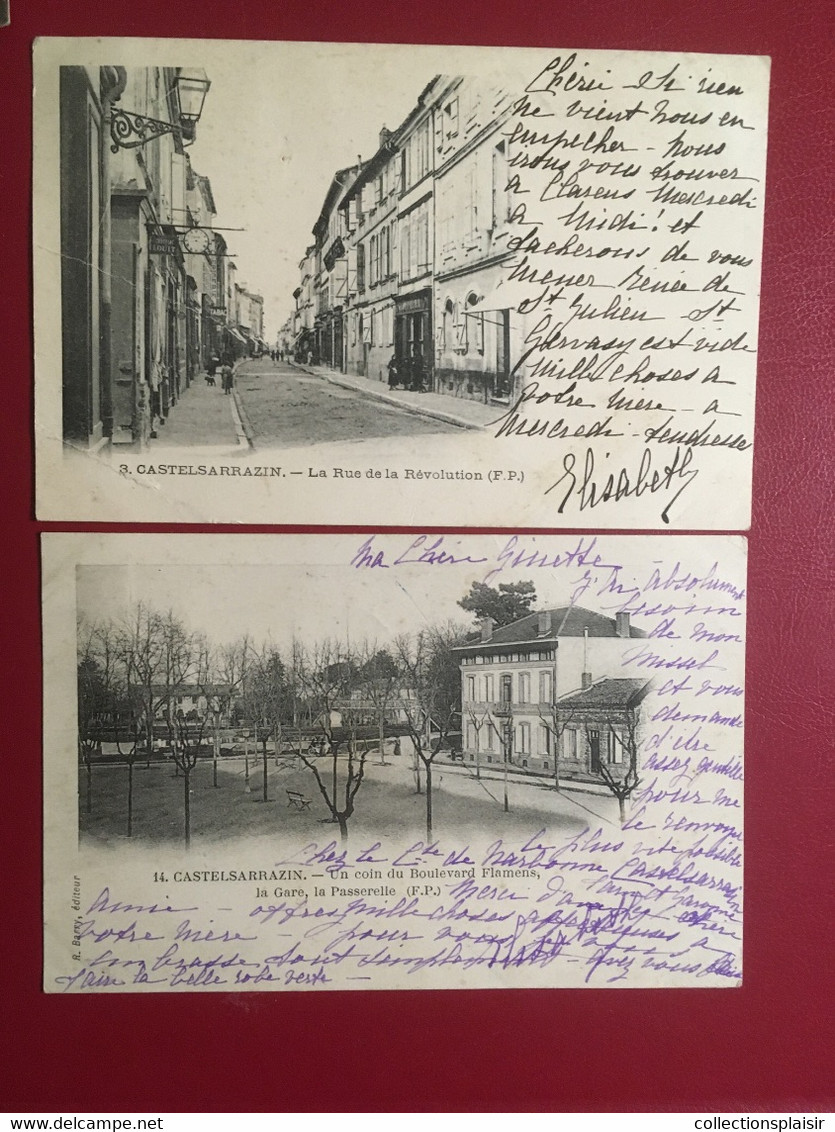 Chérie - Si rien
ne vient nous en
empêcher - nous
irons vous trouver
a Clarens Mercredi
a Midi! et
tacherons de vous
mener Renée de
St Julien - St
Gervasy est vide
Mille choses a
votre Mère - a
Mercredi - tendresse
Elisabeth
LOUIT
3. CASTELSARRAZIN. — La Rue de la Révolution (F.P.)
Ma Chère Ginette -
J'ai absolument
besoin
de mon
missel
et vous
demande
d'être
assez gentille
pour me
le renvoyer
le plus vite possible
Chez le Cte de Narbonne Castelsarrazin
Tarn et Garonne
14. CASTELSARRAZIN. — Un coin du Boulevard Flamens,
la Gare, la Passerelle (F.P.)
R. Barry, éditeur
Merci d'avance chère
Amie - offres mille choses affectueuses a
votre Mère - pour vous je vous
embrasse tout simplement - avez vous
faire la belle robe verte -
collectionsplaisir